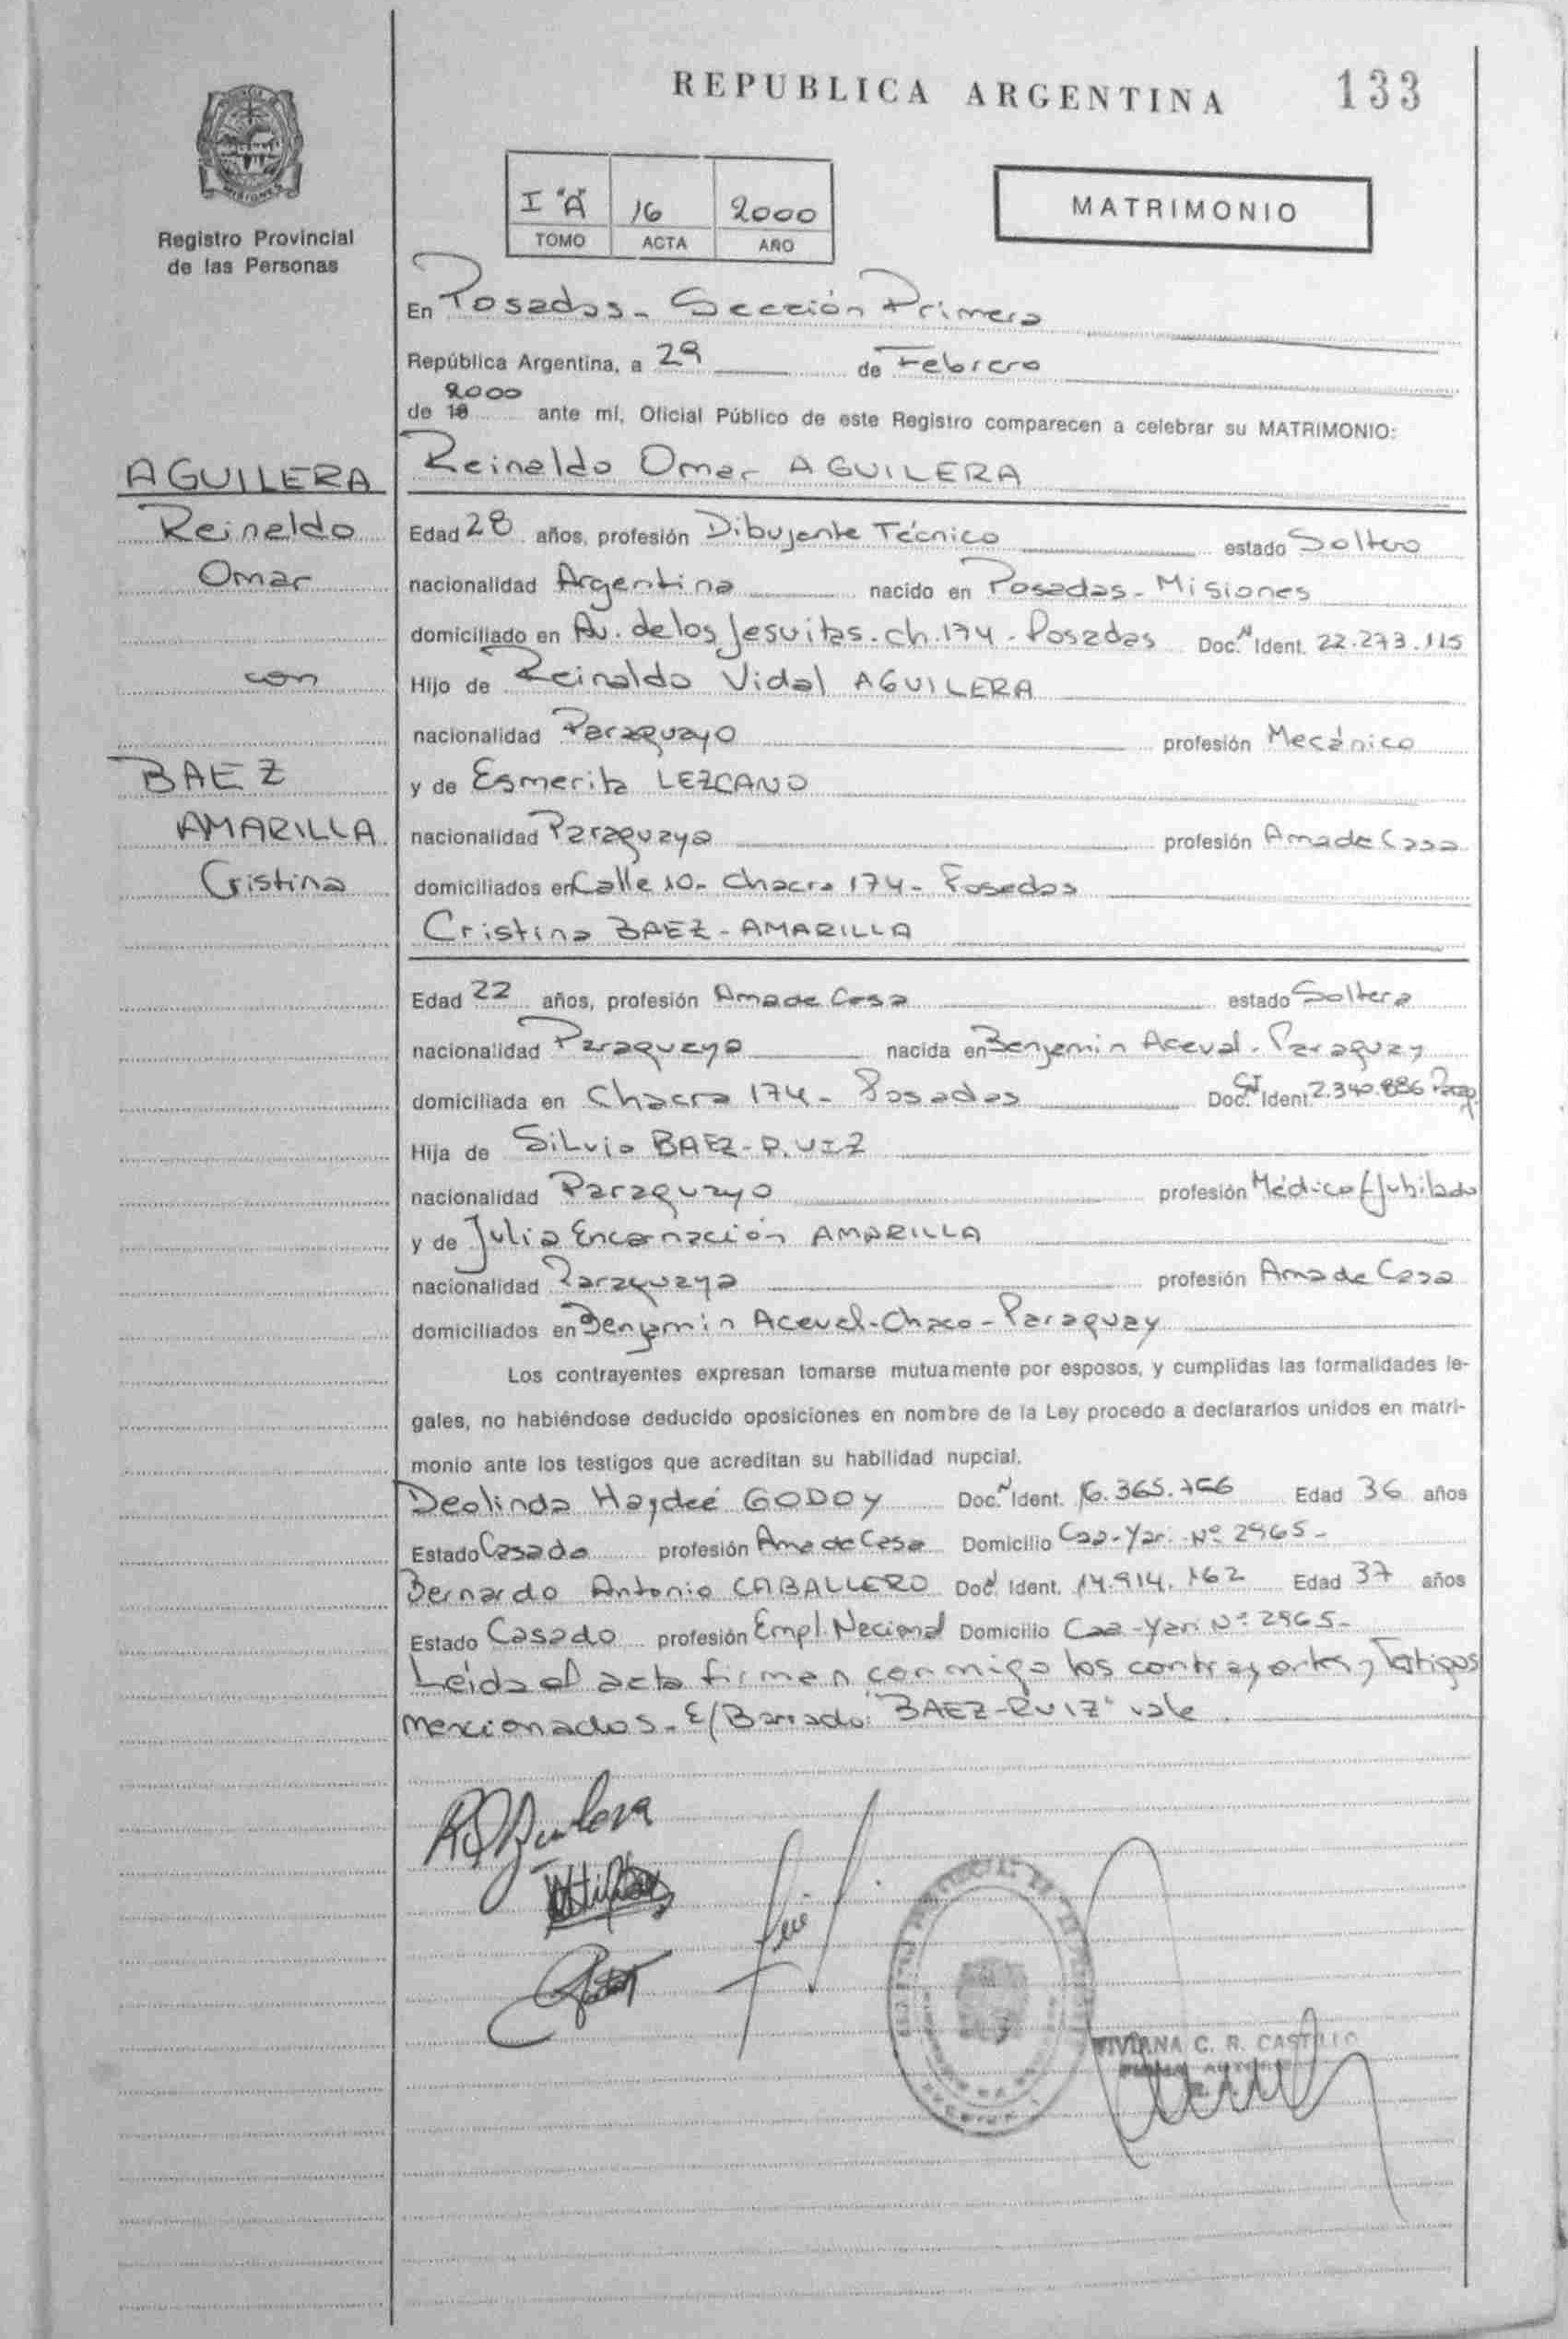 REPUBLICA ARGENTINA 133
MISIONES
Registro Provincial
de las Personas
I "A" 16 2000
TOMO ACTA AÑO
MATRIMONIO
En Posadas - Sección Primera
República Argentina, a 29 de Febrero
2000
de 19 ante mí, Oficial Público de este Registro comparecen a celebrar su MATRIMONIO:
Reinaldo Omar AGUILERA
AGUILERA
Reinaldo
Omar
con
BAEZ
AMARILLA
Cristina
Edad 28 años, profesión Dibujante Técnico estado Soltero
nacionalidad Argentina nacido en Posadas - Misiones
domiciliado en Av. de los Jesuitas. ch. 174 - Posadas Doc. N Ident. 22.273.115
Hijo de Reinaldo Vidal AGUILERA
nacionalidad Paraguayo profesión Mecánico
y de Esmerita LEZCANO
nacionalidad Paraguaya profesión Ama de Casa
domiciliados en Calle 10 - Chacra 174 - Posadas
Cristina BAEZ - AMARILLA
Edad 22 años, profesión Ama de Casa estado Soltera
nacionalidad Paraguaya nacida en Benjamin Aceval - Paraguay
domiciliada en Chacra 174 - Posadas Doc. CI Ident. 2.340.886 Parag.
Hija de Silvio BAEZ - RUIZ
nacionalidad Paraguayo profesión Médico/Jubilado
y de Julia Encarnación AMARILLA
nacionalidad Paraguaya profesión Ama de Casa
domiciliados en Benjamin Aceval - Chaco - Paraguay
Los contrayentes expresan tomarse mutuamente por esposos, y cumplidas las formalidades le-
gales, no habiéndose deducido oposiciones en nombre de la Ley procedo a declararlos unidos en matri-
monio ante los testigos que acreditan su habilidad nupcial.
Deolinda Haydeé GODOY Doc. N Ident. 16.365.756 Edad 36 años
Estado Casada profesión Ama de Casa Domicilio Caa-Yari Nº 2965 -
Bernardo Antonio CABALLERO Doc. N Ident. 14.914.162 Edad 37 años
Estado Casado profesión Empl. Nacional Domicilio Caa-Yari Nº 2965 -
Leída el acta firman conmigo los contrayentes y testigos
mencionados - E/Borrado: "BAEZ-RUIZ" vale
VIVIANA C. R. CASTILLO